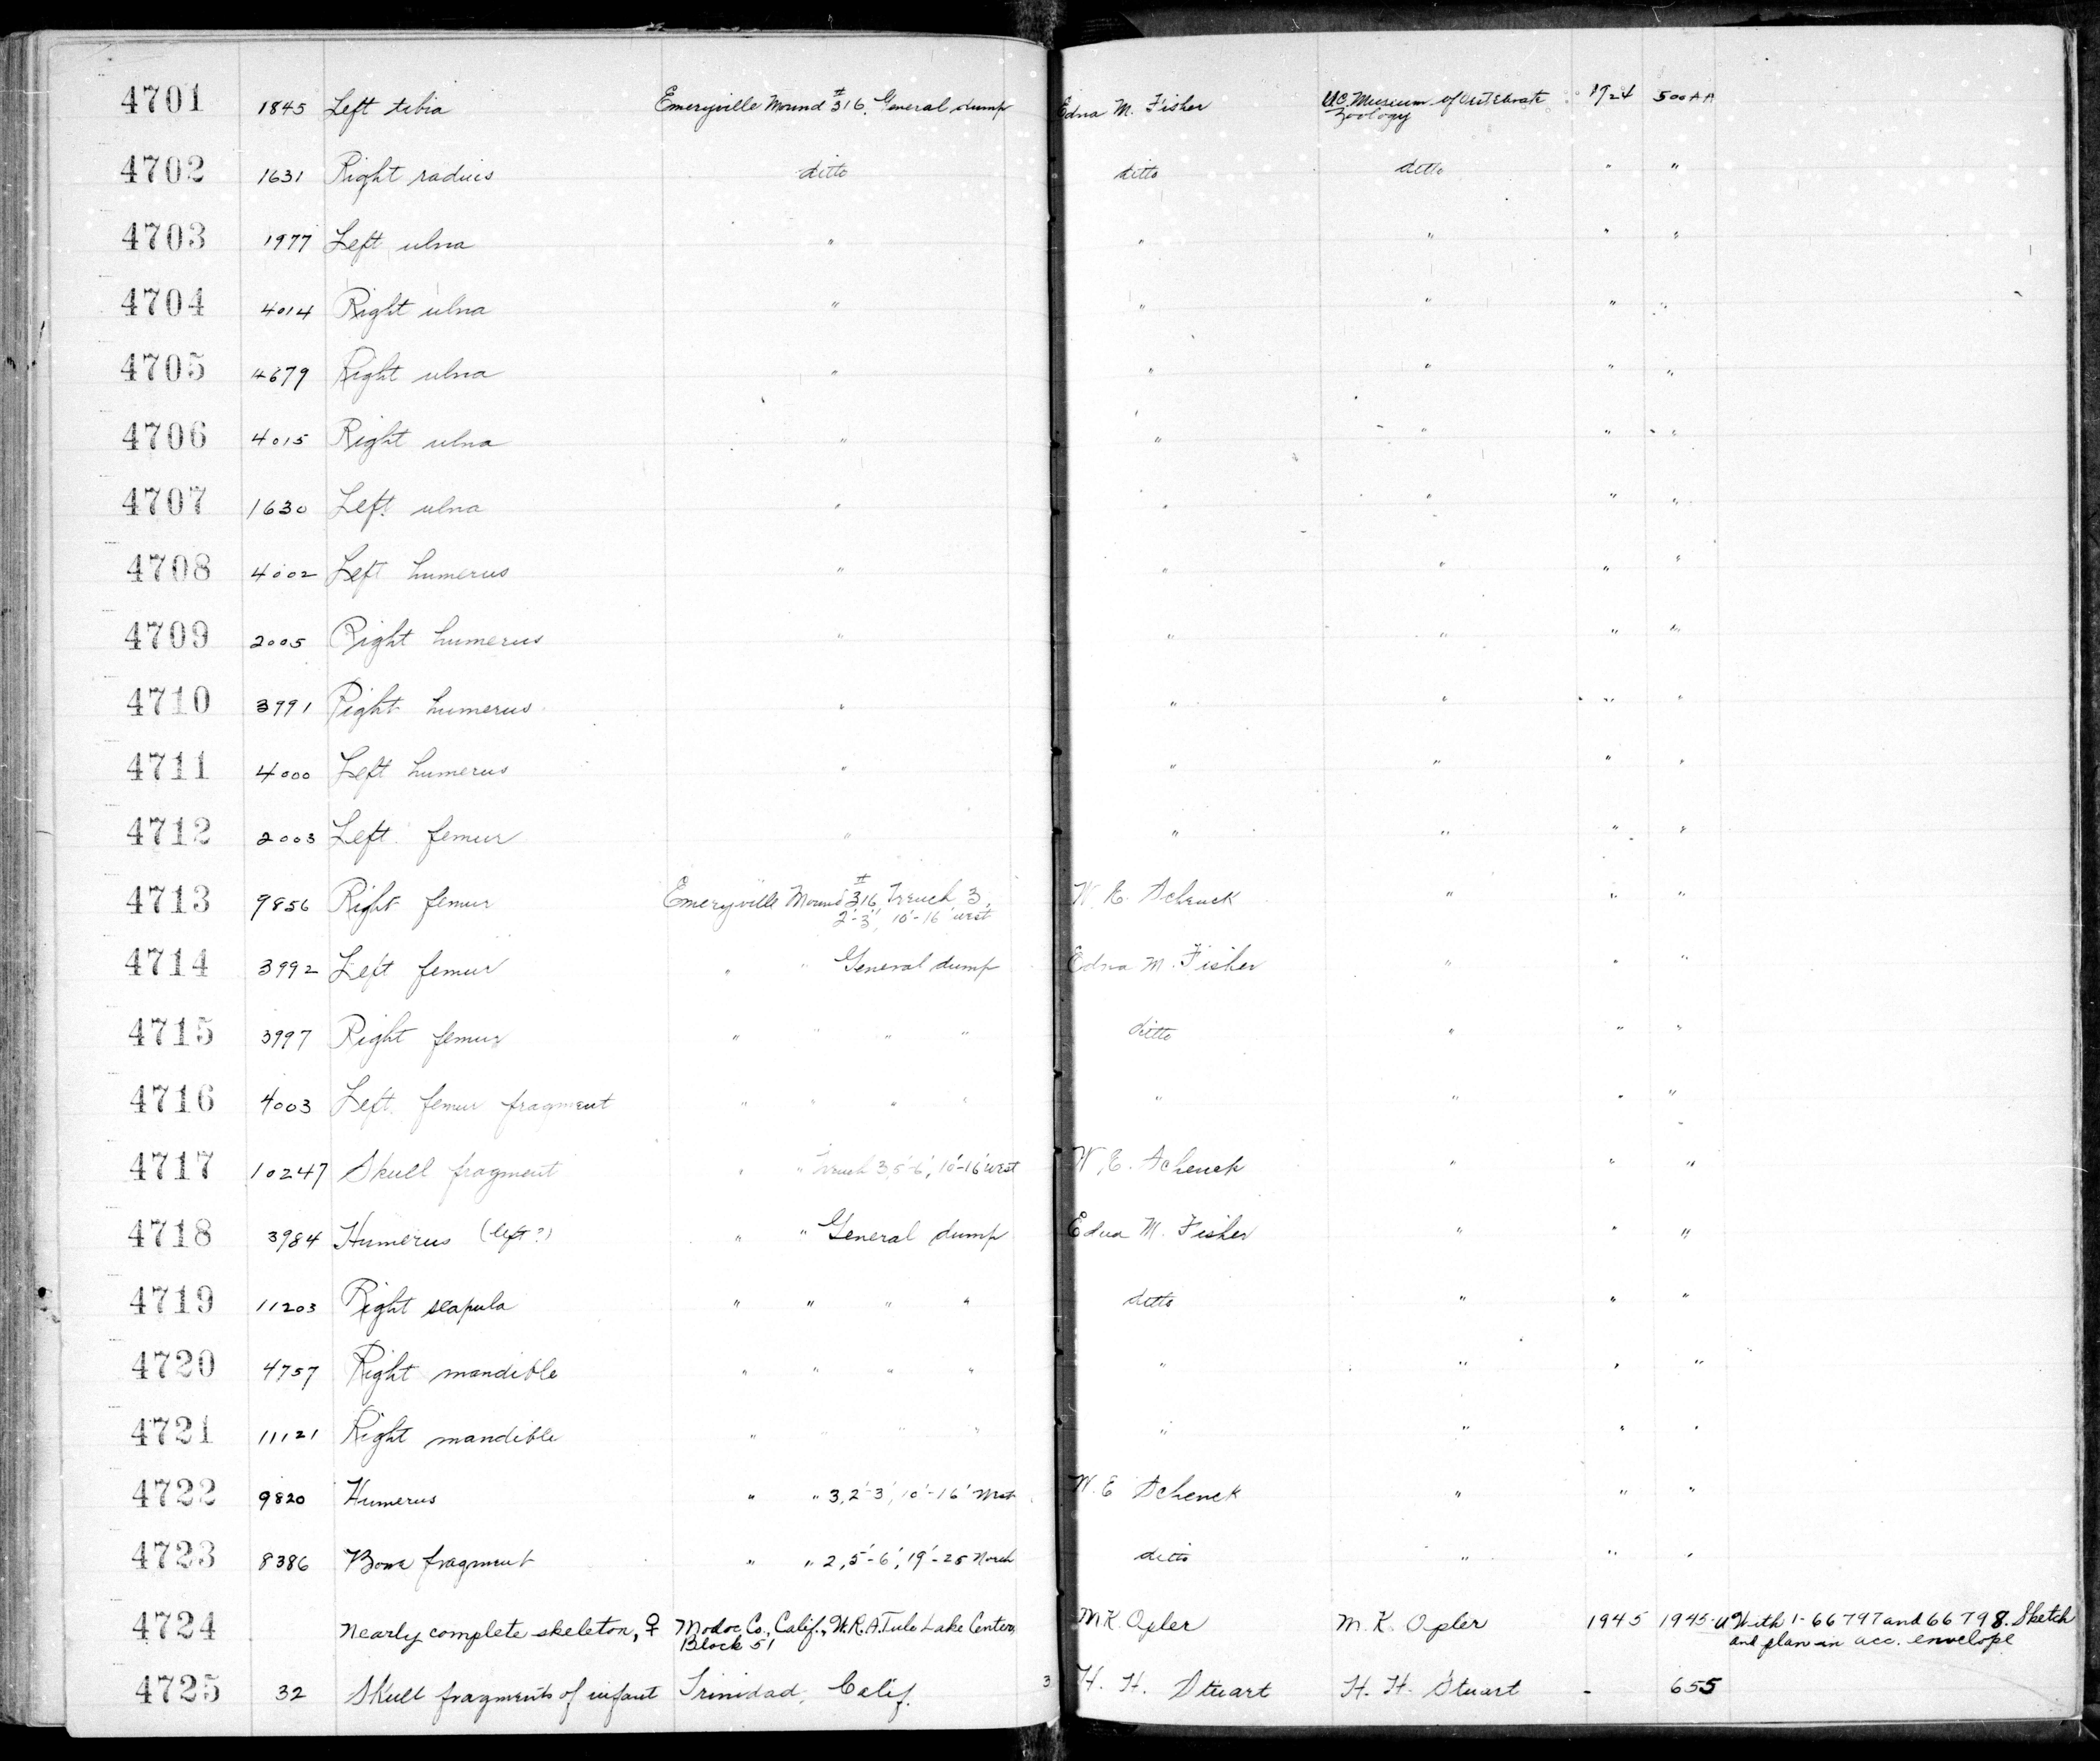 4701 1845 Left tibia Emeryville Mound #316, General dump Edna M. Fisher UC. Museum of Vertebrate Zoology 1924 500AA
4702 1631 Right radius ditto ditto ditto " "
4703 1977 Left ulna " " " " "
4704 4014 Right ulna " " " " "
4705 4679 Right ulna " " " " "
4706 4015 Right ulna " " " " "
4707 1630 Left ulna " " " " "
4708 4002 Left humerus " " " " "
4709 2005 Right humerus " " " " "
4710 3991 Right humerus " " " " "
4711 4000 Left humerus " " " " "
4712 2003 Left femur " " " " "
4713 9856 Right femur Emeryville Mound #316, Trench 3, 2'-3', 10'-16' west W. E. Schenck " " "
4714 3992 Left femur " " General dump Edna M. Fisher " " "
4715 3997 Right femur " " " " ditto " " "
4716 4003 Left femur fragment " " " " " " " "
4717 10247 Skull fragment " " Trench 3, 5'-6', 10'-16' west W. E. Schenck " " "
4718 3984 Humerus (left?) " " General dump Edna M. Fisher " " "
4719 11203 Right scapula " " " " ditto " " "
4720 4757 Right mandible " " " " " " " "
4721 11121 Right mandible " " " " " " " "
4722 9820 Humerus " " 3, 2'-3', 10'-16' West W. E Schenck " " "
4723 8386 Bone fragment " " 2, 5'-6', 19'-25 North ditto " " "
4724 Nearly complete skeleton, ♀ Modoc Co., Calif., W.R.A. Tule Lake Center, Block 51 M.K. Opler M. K. Opler 1945 1945- With 1-66797 and 66798. Sketch and plan in acc. envelope
4725 32 Skull fragments of infant Trinidad, Calif. 3 H. H. Stuart H. H. Stuart - 655